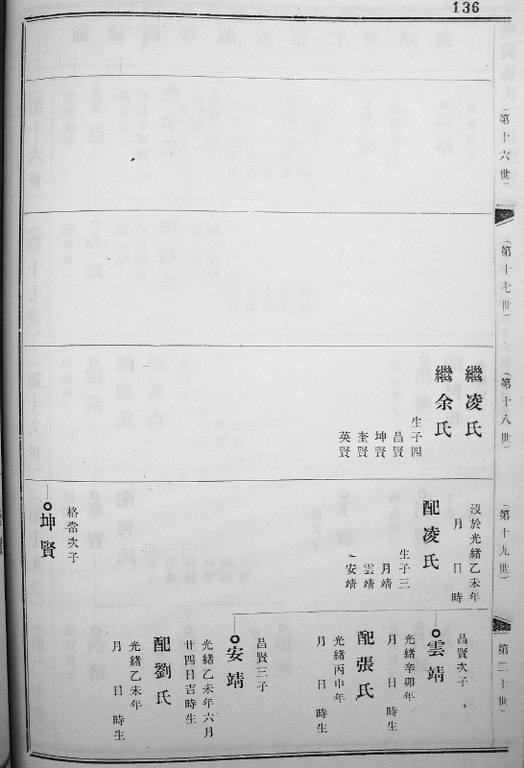 136
（第十六世）
（第十七世）
（第十八世）
繼凌氏
繼余氏
生子四
昌賢
坤賢
奎賢
英賢
（第十九世）
沒於光緒乙未年
月 日 時
配凌氏
生子三
月靖
雲靖
安靖
格常次子
坤賢
（第二十世）
昌賢次子
雲靖
光緒辛卯年
月 日 時生
配張氏
光緒丙申年
月 日 時生
昌賢三子
安靖
光緒乙未年六月
廿四日吉時生
配劉氏
光緒乙未年
月 日 時生